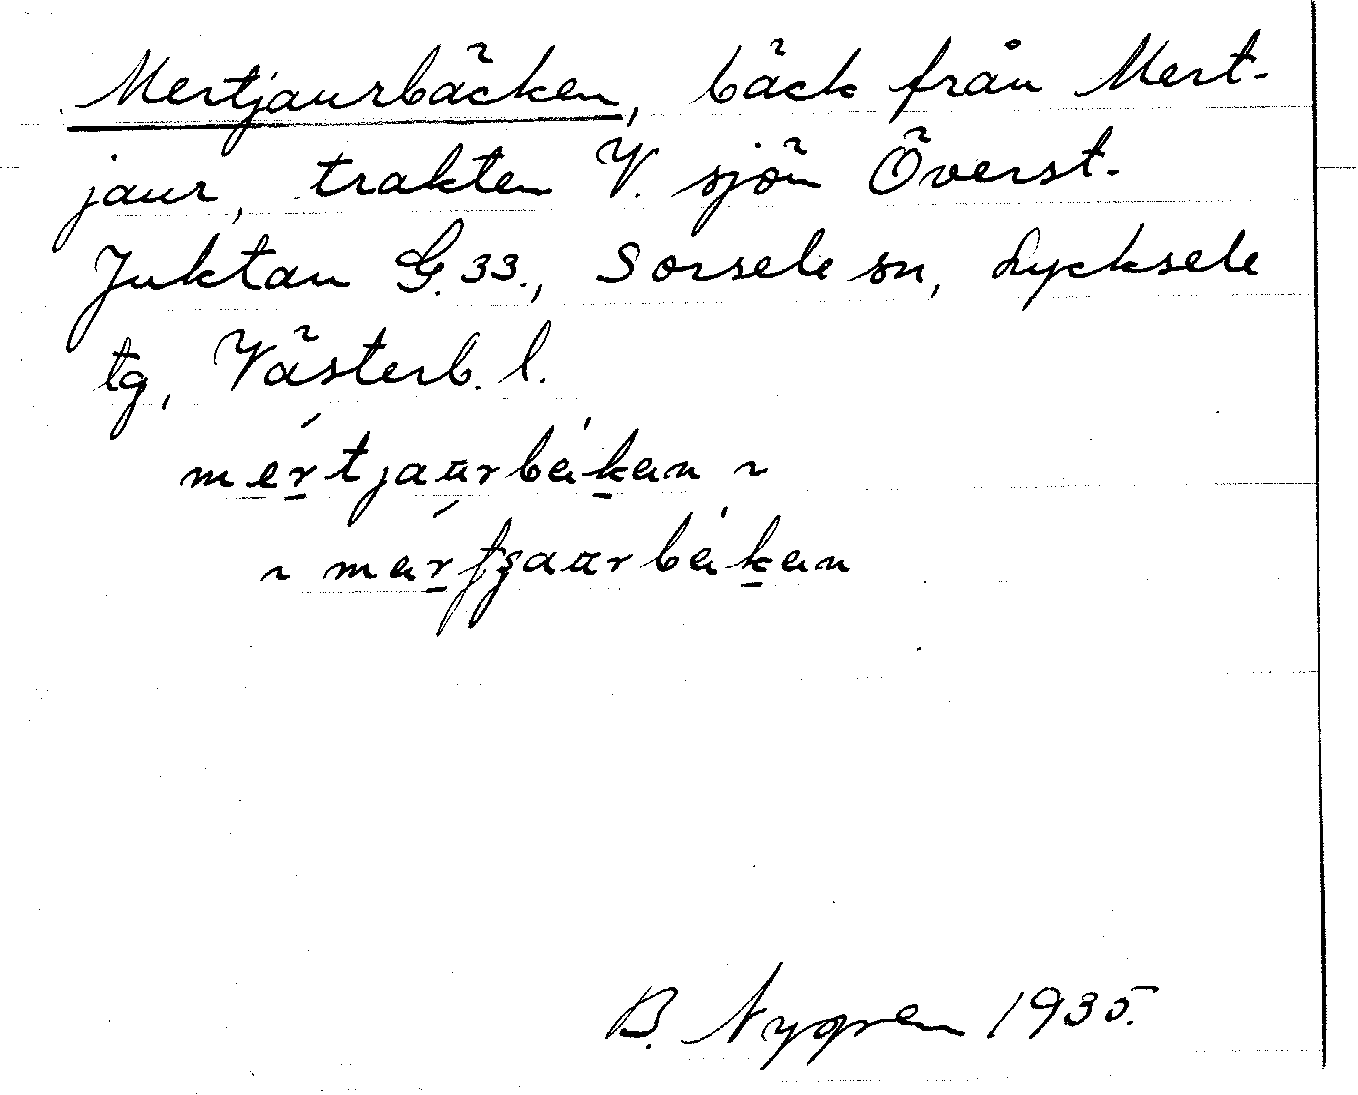 Mertjaurbäcken, bäck från Mert-
jaur, trakten V. sjön Överst-
Juktan G.33., Sorsele sn, Lycksele
tg, Västerb. l.
mertjaurbäkan ~
~ 
B. Nygren 1935.